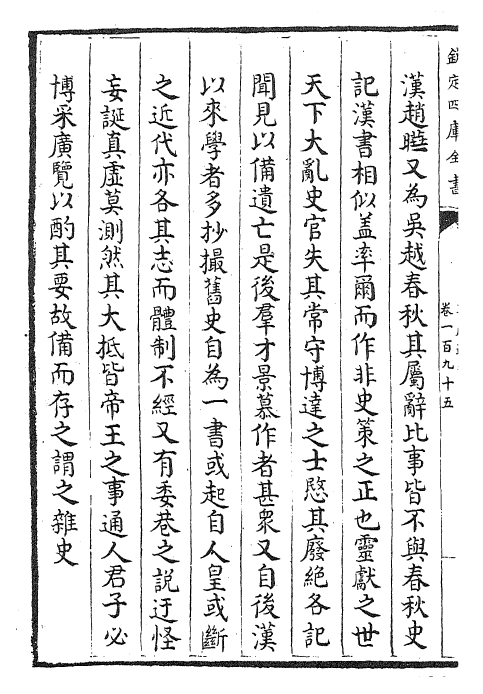 欽定四庫全書
卷一百九十五
漢趙曄又為吳越春秋其屬辭比事皆不與春秋史
記漢書相似盖率爾而作非史策之正也靈獻之世
天下大亂史官失其常守博達之士愍其廢絶各記
聞見以備遺亡是後羣才景慕作者甚衆又自後漢
以來學者多抄撮舊史自為一書或起自人皇或斷
之近代亦各其志而體制不經又有委巷之説迂怪
妄誕真虛莫測然其大抵皆帝王之事通人君子必
博采廣覽以酌其要故備而存之謂之雜史